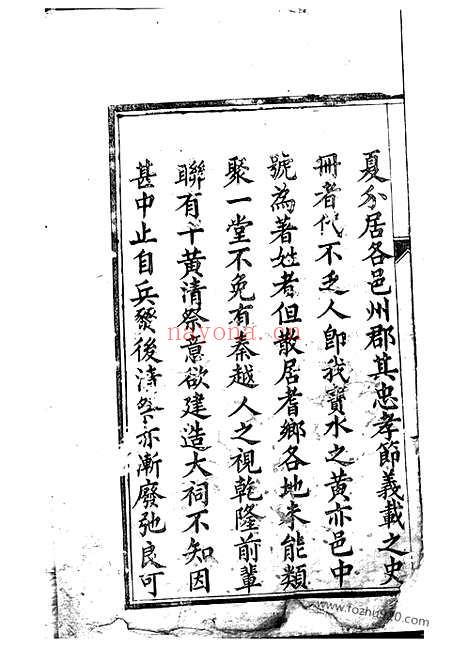 夏分居各邑州郡其忠孝節義載之史
冊者代不乏人卽我寶水之黃亦邑中
號為著姓者但散居耆鄉各地未能類
聚一堂不免有秦越人之視乾隆前輩
聯有千黃清祭意欲建造大祠不知因
甚中止自兵燹後清祭亦漸廢弛良可
nayona.cn
www.fozhu920.com